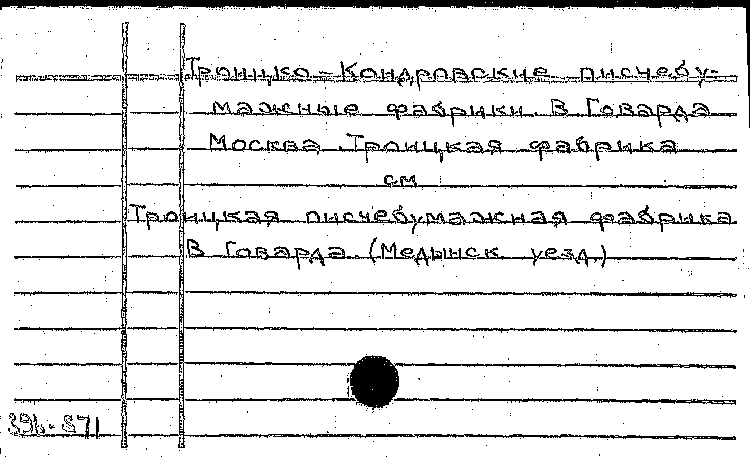 Троицко-Кондровские писчебу-
мажные фабрики. В Говарда
Москва. Троицкая фабрика
см
Троицкая писчебумажная фабрика
В Говарда. (Медынск. уезд.)